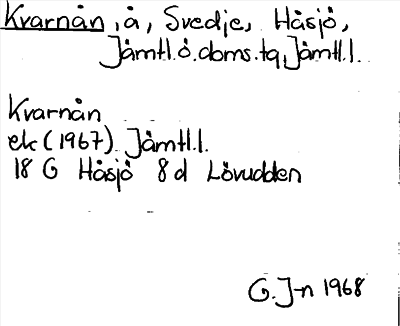 Kvarnån, å, Svedje, Håsjö,
Jämtl.ö.doms.tg, Jämtl.l.
Kvarnån
ek (1967) Jämtl.l.
18 G Håsjö 8d Lövudden
G. J-n 1968